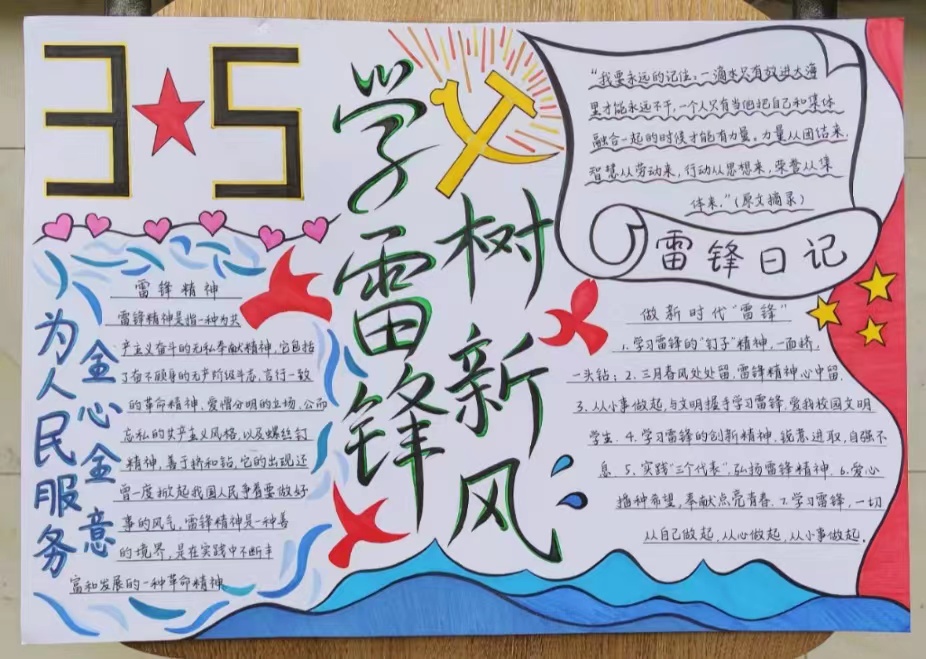 3 5
学雷锋
树新风
"我要永远的记住：一滴水只有放进大海
里才能永远不干，一个人只有当他把自己和集体
融合一起的时候才能有力量。力量从团结来，
智慧从劳动来，行动从思想来，荣誉从集
体来。"（原文摘录）
雷锋日记
为人民服务
全心全意
雷锋精神
雷锋精神是指一种为共
产主义奋斗的无私奉献精神，它包括
了奋不顾身的无产阶级斗志，言行一致
的革命精神，爱憎分明的立场，公而
忘私的共产主义风格，以及螺丝钉
精神，善于挤和钻，它的出现还
曾一度掀起我国人民争着要做好
事的风气，雷锋精神是一种善
的境界，是在实践中不断丰
富和发展的一种革命精神
做新时代"雷锋"
1.学习雷锋的"钉子"精神，一面挤，
一头钻；2.三月春风处处留，雷锋精神心中留.
3.从小事做起，与文明握手学习雷锋，爱我校园文明
学生. 4.学习雷锋的创新精神，锐意进取，自强不
息. 5.实践"三个代表"，弘扬雷锋精神. 6.爱心
播种希望，奉献点亮青春. 7.学习雷锋，一切
从自己做起，从心做起，从小事做起.